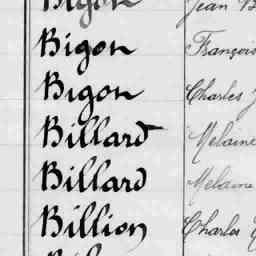 Bigon Jean
Bigon François
Bigon Charles
Billard Melaine
Billard Melaine
Billion Charles